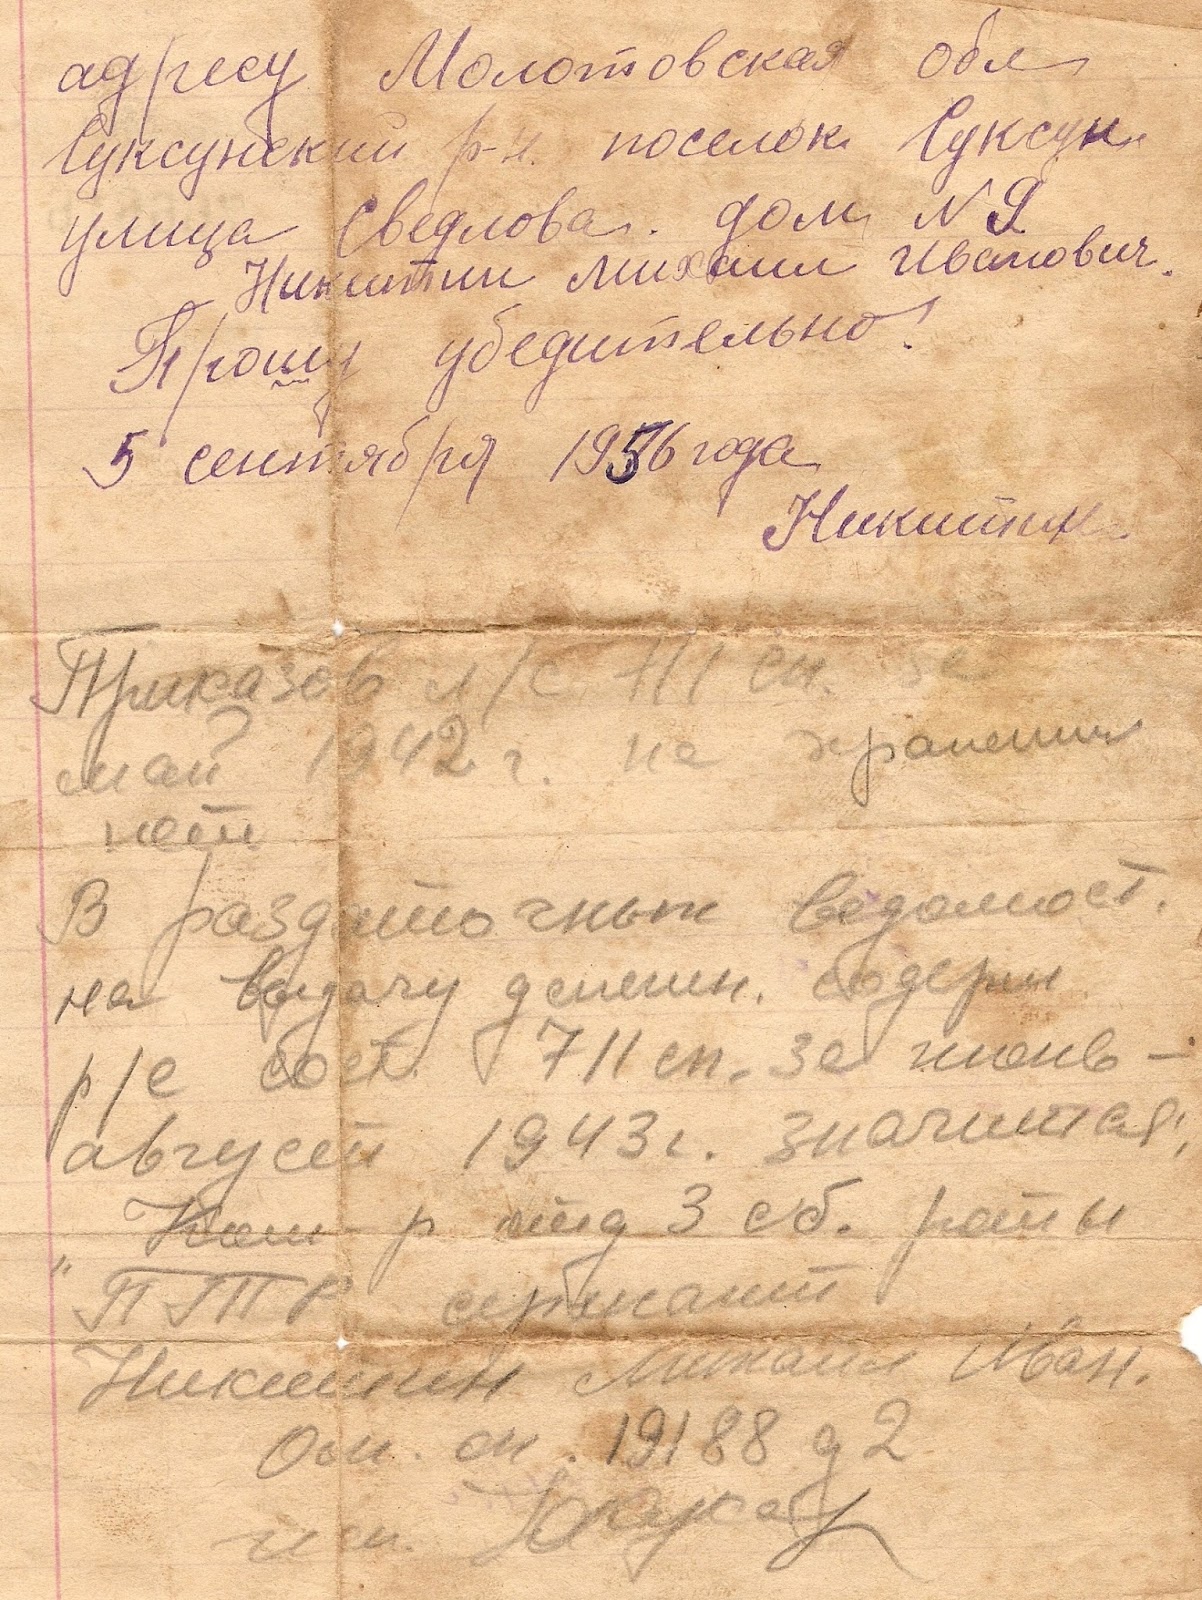 адресу Молотовская обл
Суксунский р-н. поселок Суксун
улица Сведлова. дом N 9
Никитин Михаил Иванович.
Прошу убедительно!
5 сентября 1956 года
Никитин.
Приказов л/с 711 сп. за
май 1942 г. на хранении
нет
В раздаточных ведомост.
на выдачу денежн. содерж
р/с сост. 711 сп. за июнь –
август 1943 г. значится:
" Ком-р отд 3 сб. роты
ПТР сержант
Никитин Михаил Иван.
Осн. оп. 19188 д 2
исп.